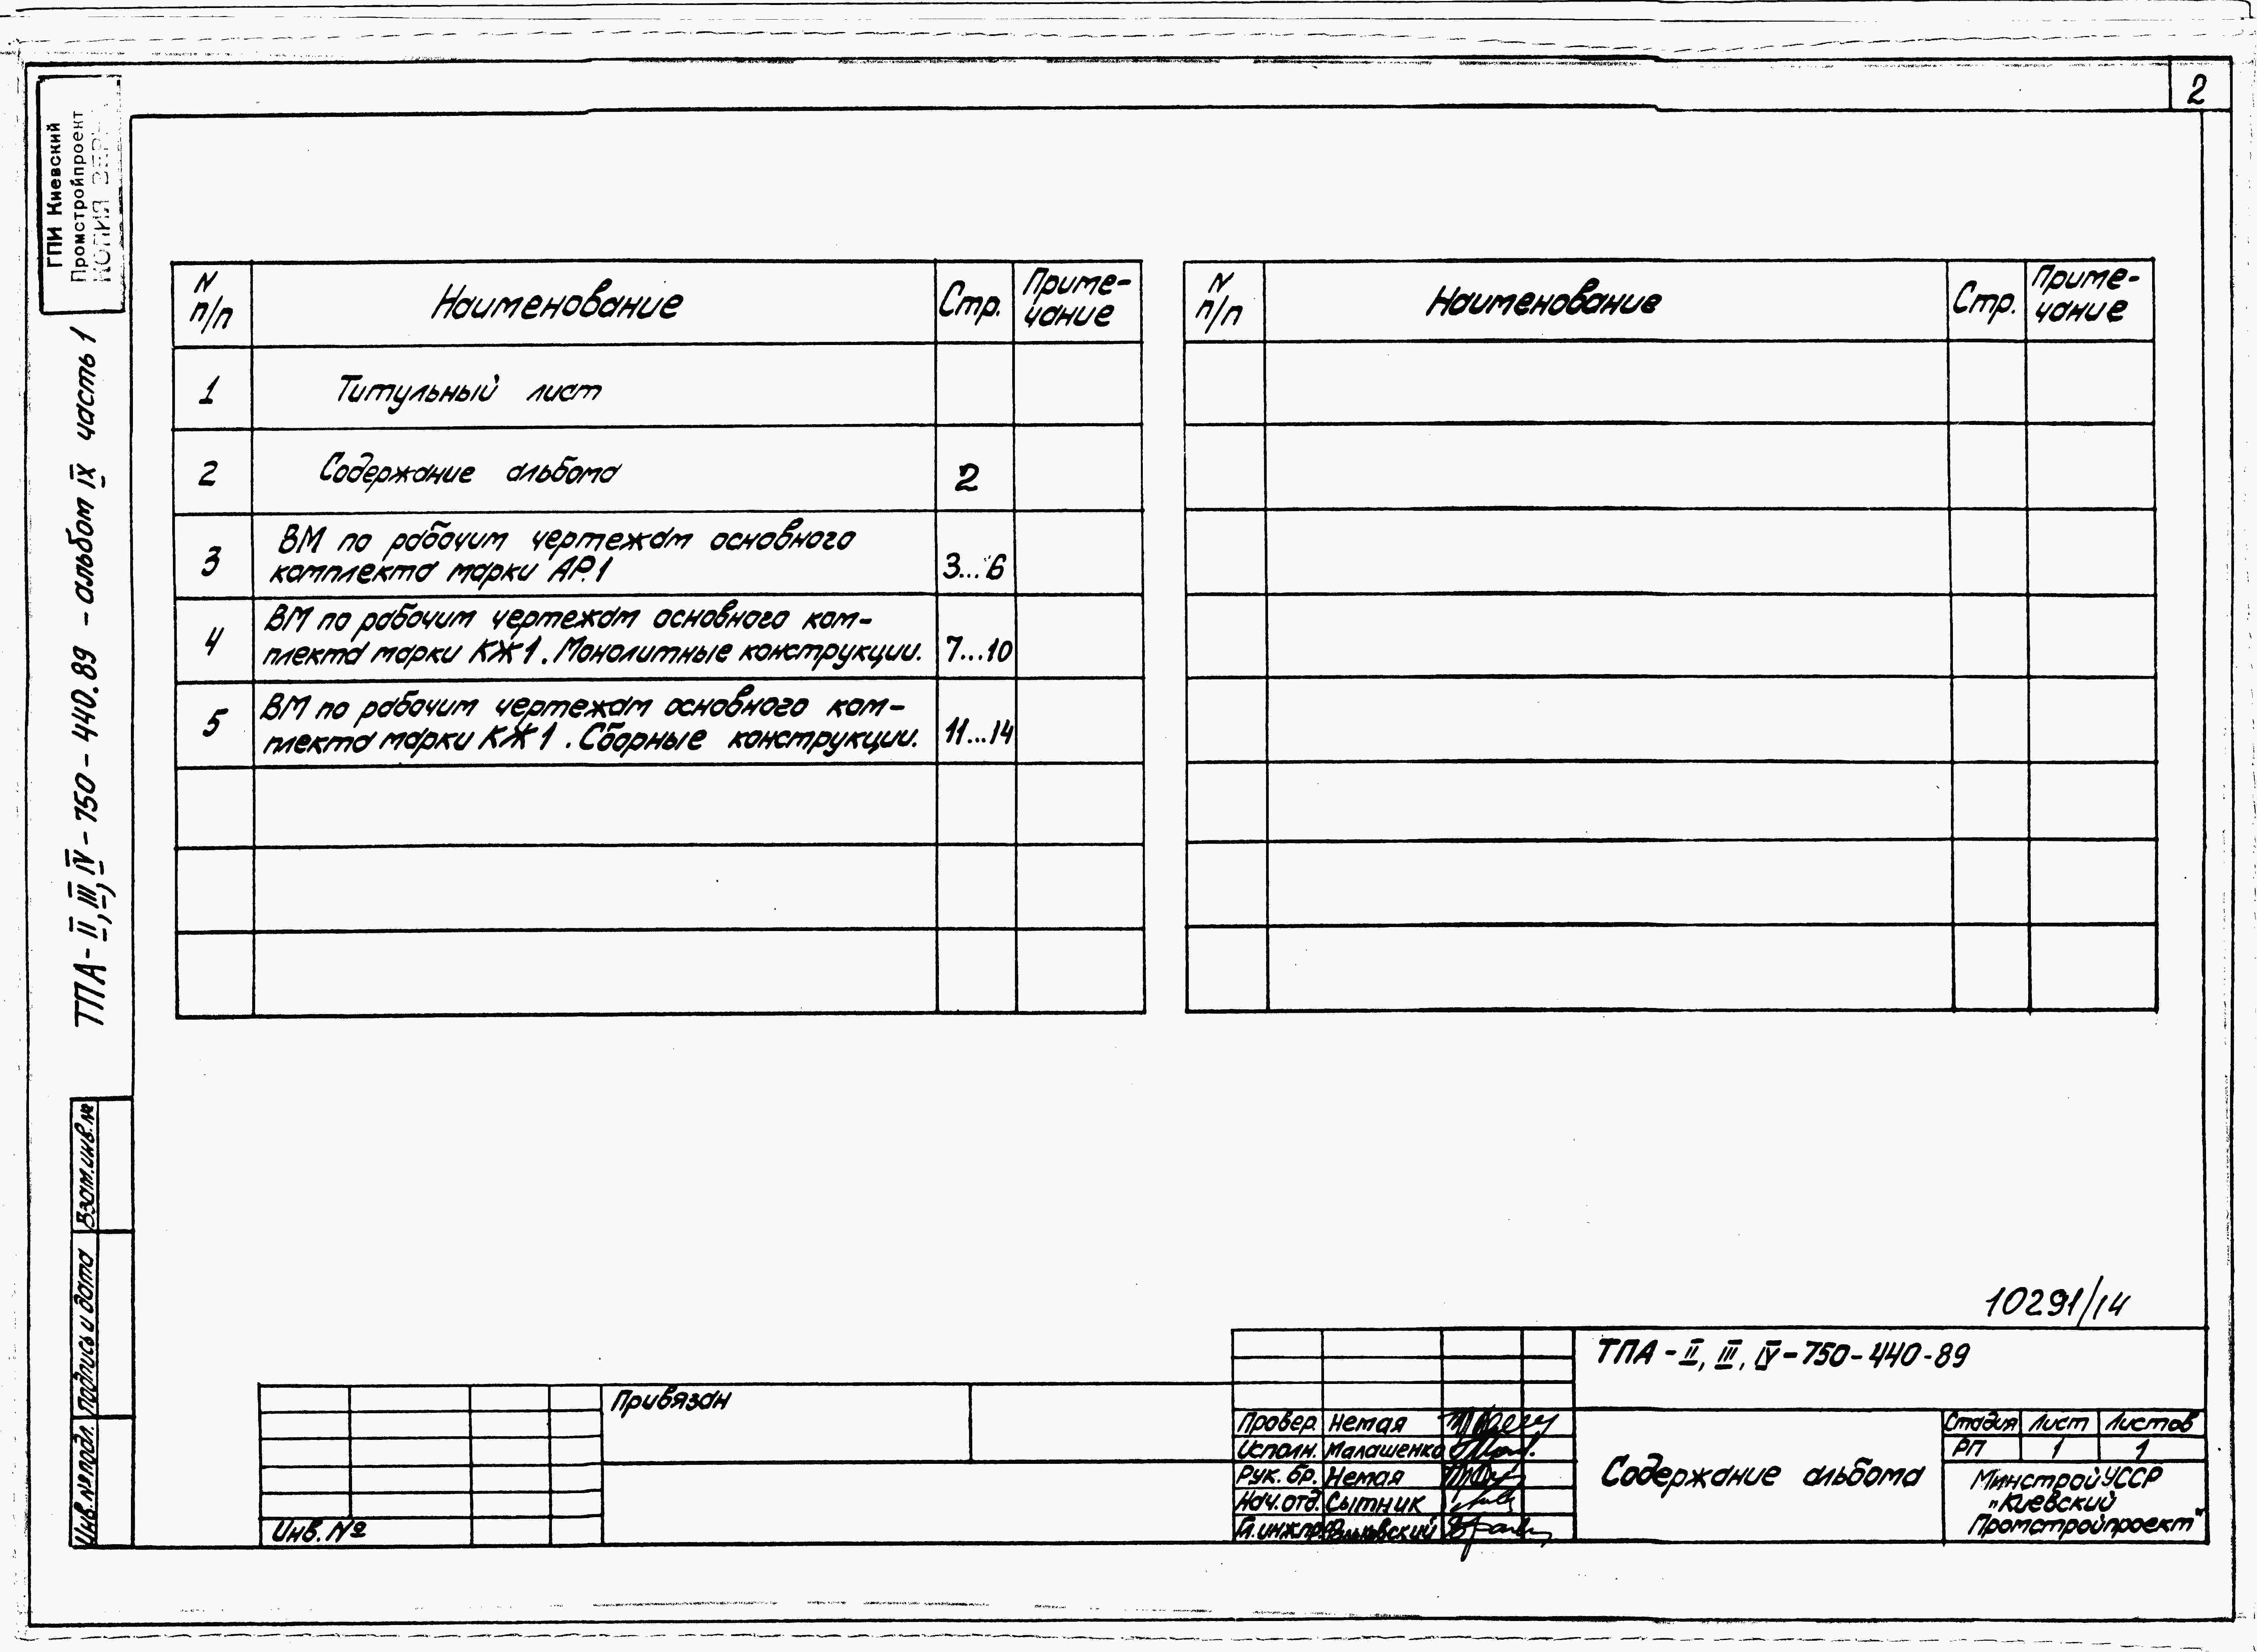 2
ГПИ Киевский
Промстройпроект
КОПИЯ
ТПА - II, III, IV - 750 - 440.89 - альбом IX часть 1
N п/п
Наименование
Стр.
Приме-
чание
1 Титульный лист
2 Содержание альбома 2
3 ВМ по рабочим чертежам основного
комплекта марки АР.1 3...6
4 ВМ по рабочим чертежам основного ком-
плекта марки КЖ1. Монолитные конструкции. 7...10
5 ВМ по рабочим чертежам основного ком-
плекта марки КЖ1. Сборные конструкции. 11...14
N п/п
Наименование
Стр.
Приме-
чание
Взам.инв.№
Подпись и дата
Инв.№ подл.
10291/14
Привязан
Инв. №
ТПА - II, III, IV - 750 - 440 - 89
Провер. Немая
Исполн. Малашенко
Рук. бр. Немая
Нач. отд. Сытник
Гл.инж.пр.
Содержание альбома
Стадия Лист Листов
РП 1 1
Минстрой УССР
„Киевский
Промстройпроект"